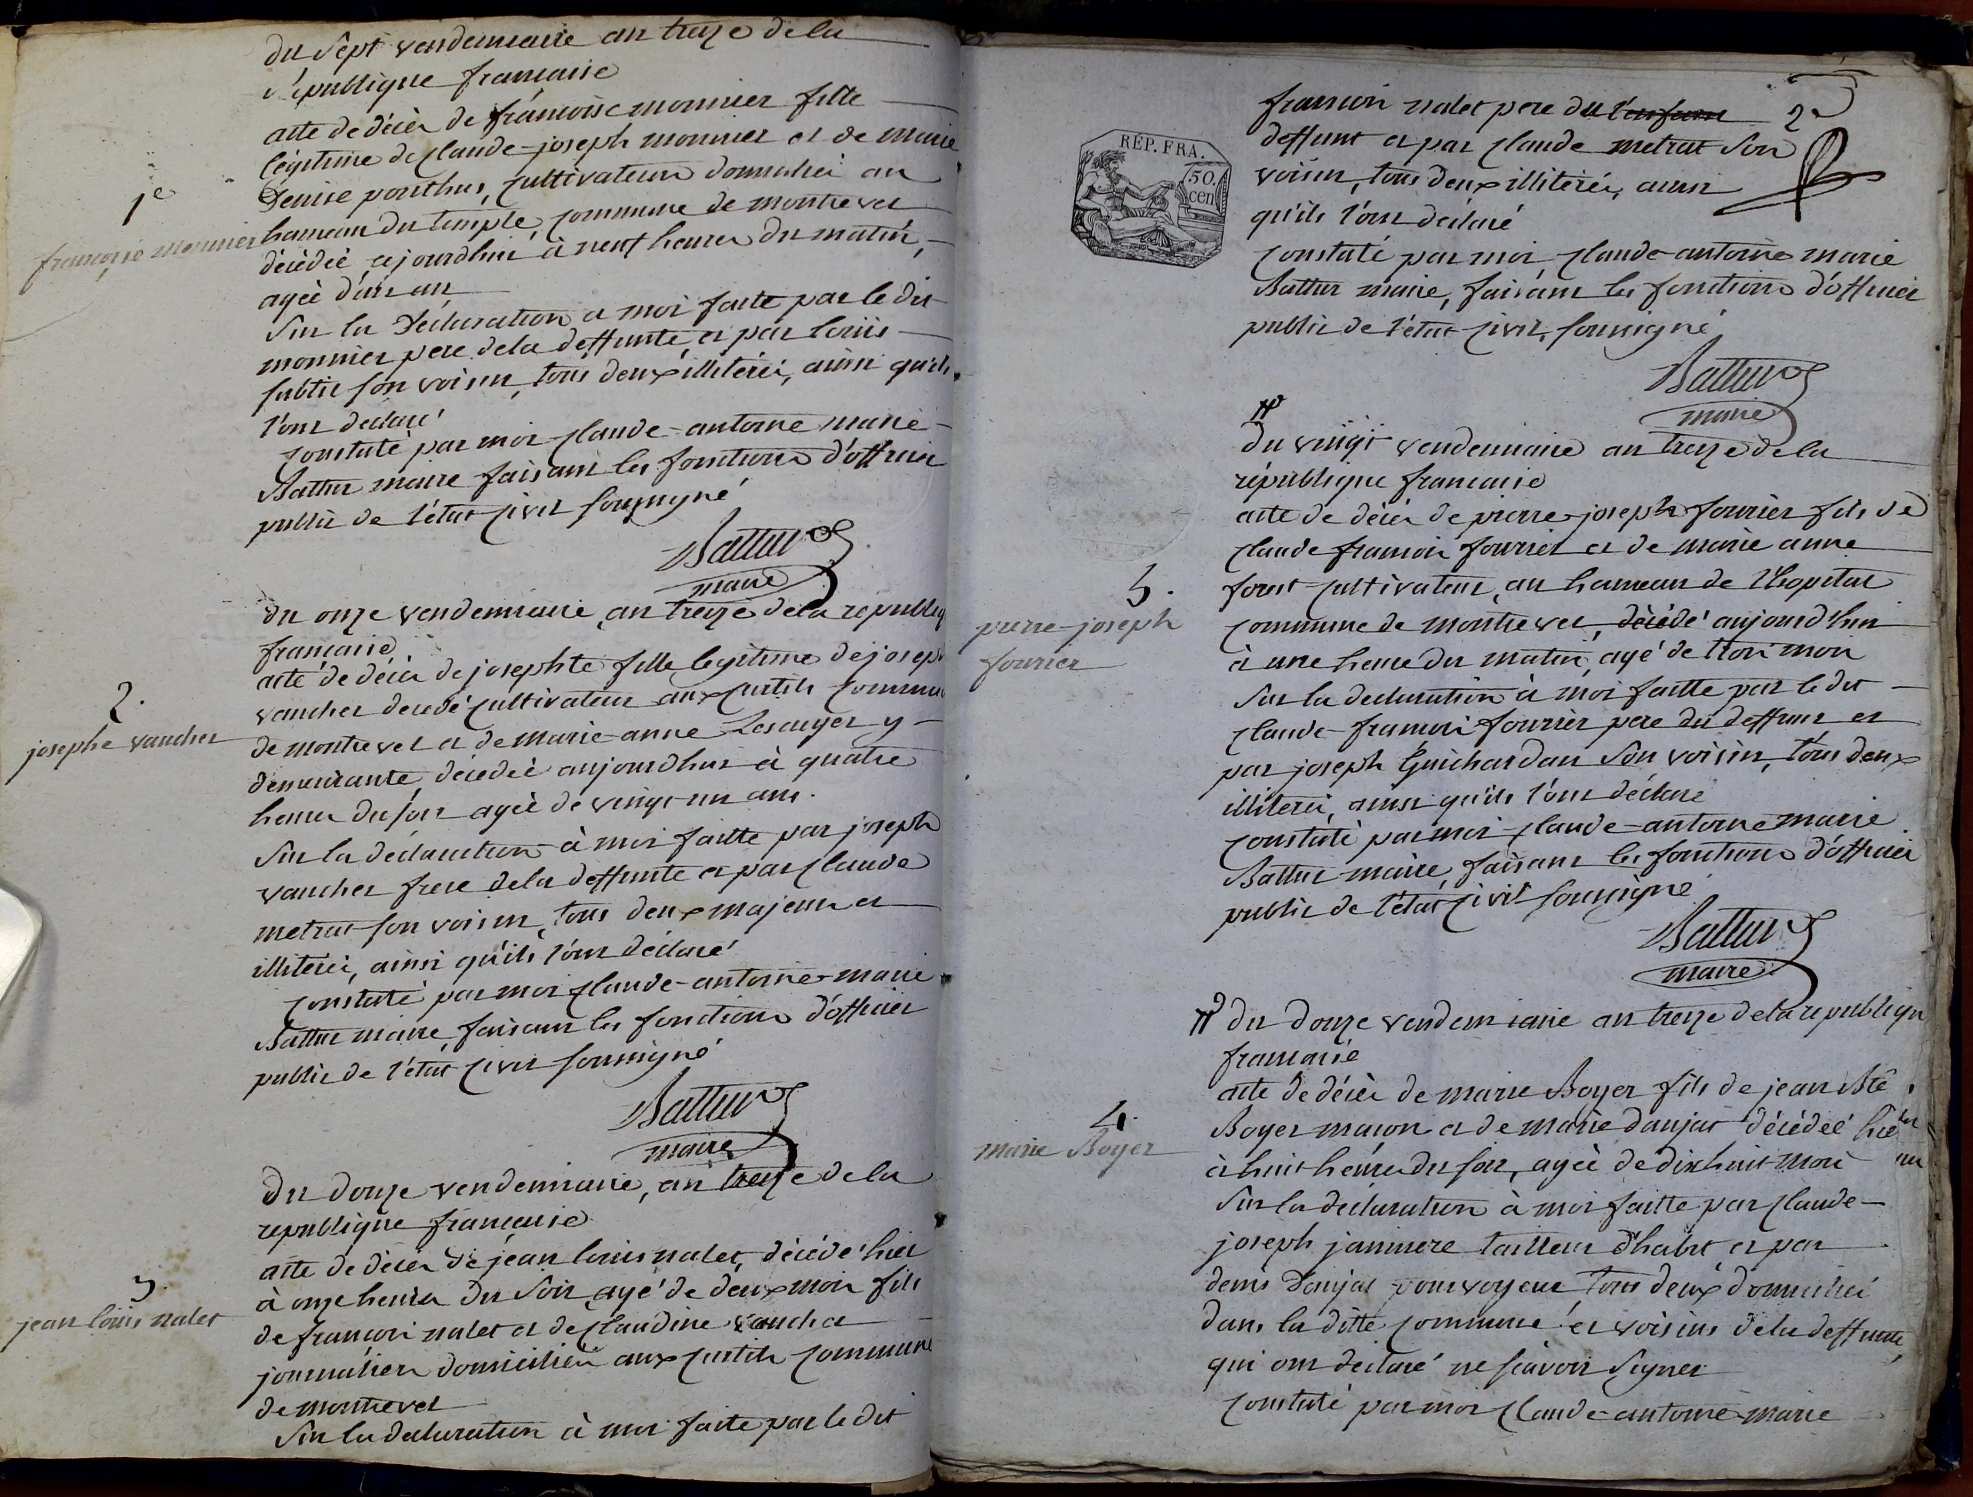 du sept vendemiaire an treze dela
république francaise
acte de décès de francoise monnier fille
légitime de claude-joseph monnier et de marie
Denise ponthus, cultivateurs domiciliés au
hameau du temple, commune de montrevel
décédée cejourdhui à neuf heures du matin,
agée d'un an
sur la déclaration a moi faite par le dit
monnier pere dela deffunte et par louis
subtil son voisin, tous deux illiterés, ainsi qu'ils
l'ont déclaré
constaté par moi claude-antoine marie
Battur maire faisant les fonctions d'officier
public de l'état civil soussigné
Battur
maire
1e
francoise monnier
du onze vendemiaire, an treize dela republiq
francaise
acte de décès de josephte fille legitime de joseph
vaucher decedé cultivateur aux curtils commune
de montrevel et de marie-anne Lescuyer y
demeurante, décedée aujourdhui à quatre
heures du soir agée de vingt-un ans.
sur la déclaration à moi faitte par joseph
vaucher frere dela deffunte et par claude
metrat son voisin, tous deux majeurs et
illiterés, ainsi qu'ils l'ont déclaré
constaté par moi claude-antoine-marie
Battur maire, faisant les fonctions d'officier
public de l'état civil soussigné
Battur
maire
2.
josephe vaucher
du douze vendemiaire, an treize de la
republique francaise
acte de décès de jean louis nalet, décédé hier
à onze heures du soir, agé de deux mois fils
de françois nalet et de claudine vaucher
journaliers domiciliés aux curtils commune
de montrevel
sur la declaration à moi faite par le dit
3.
jean louis nalet
francois nalet pere du l'enfant
deffunt et par claude metrat son
voisin, tous deux illiterés, ainsi
qu'ils l'ont déclaré
constaté par moi claude-antoine marie
Battur maire, faisant les fonctions d'officier
public de l'état civil, soussigné
Battur
maire
2
RÉP. FRA.
50.
cen
#
du vingt vendemiaire an treize dela
république francaise
acte de décès de pierre-joseph fourrier fils de
claude francois fourrier et de marie anne
forest cultivateurs, au hameau de l'hopital
commune de montrevel, décédé aujourd'hui
à une heure du matin, agé de trois mois
sur la declaration à moi faitte par le dit
claude-francois fourrier pere du deffunt et
par joseph Guichardan son voisin, tous deux
illiterés, ainsi qu'ils l'ont déclaré
constaté par moi claude-antoine marie
Battur maire, faisant les fonctions d'officier
public de l'état civil soussigné
Battur
maire
5.
pierre-joseph
fourrier
# du douze vendemiaire an treize dela republique
francaise
acte de décès de marie Boyer fils de jean Bte
Boyer macon et de marie danjat décédée hier
à huit heures du soir, agée de dixhuit mois
sur la declaration à moi faitte par claude-
joseph janinere tailleur d'habit et par
denis Danjat pourvoyeur tous deux domiciliés
dans la ditte commune et voisins dela deffunte,
qui ont déclaré ne scavoir signer
constaté par moi claude-antoine-marie
4.
marie Boyer